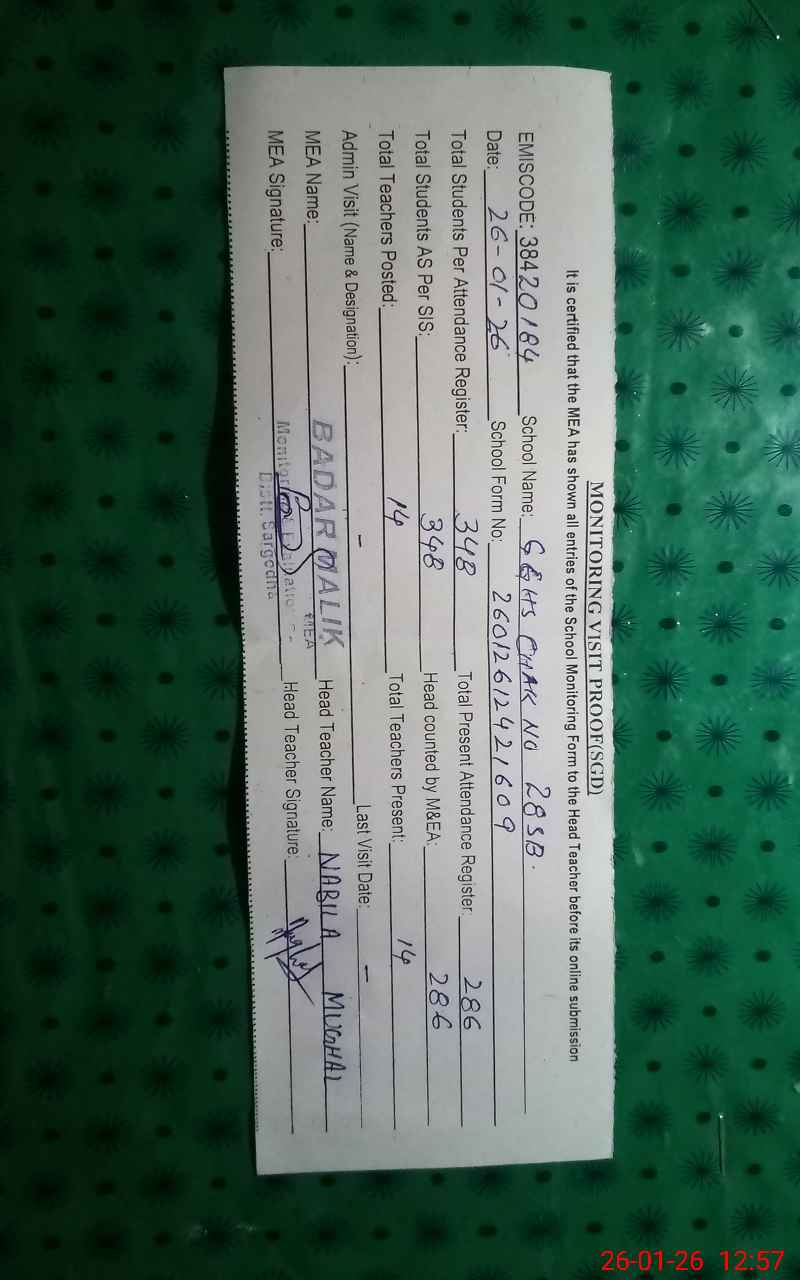 MONITORING VISIT PROOF(SGD)
It is certified that the MEA has shown all entries of the School Monitoring Form to the Head Teacher before its online submission
EMISCODE: 38420184 School Name: GGHS CHAK NO 28SB.
Date: 26-01-26 School Form No: 26012612421609
Total Students Per Attendance Register: 348 Total Present Attendance Register: 286
Total Students AS Per SIS: 348 Head counted by M&EA: 286
Total Teachers Posted: 14 Total Teachers Present: 14
Admin Visit (Name & Designation): - Last Visit Date: -
MEA Name: BADAR MALIK Head Teacher Name: NABILA MUGHAL
MEA
MEA Signature: Head Teacher Signature:
Distt. Sargodha
26-01-26 12:57